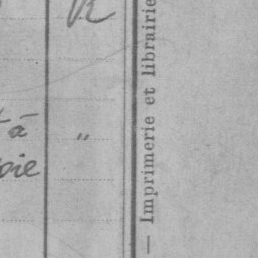 R
à
"
oie
— Imprimerie et librairie